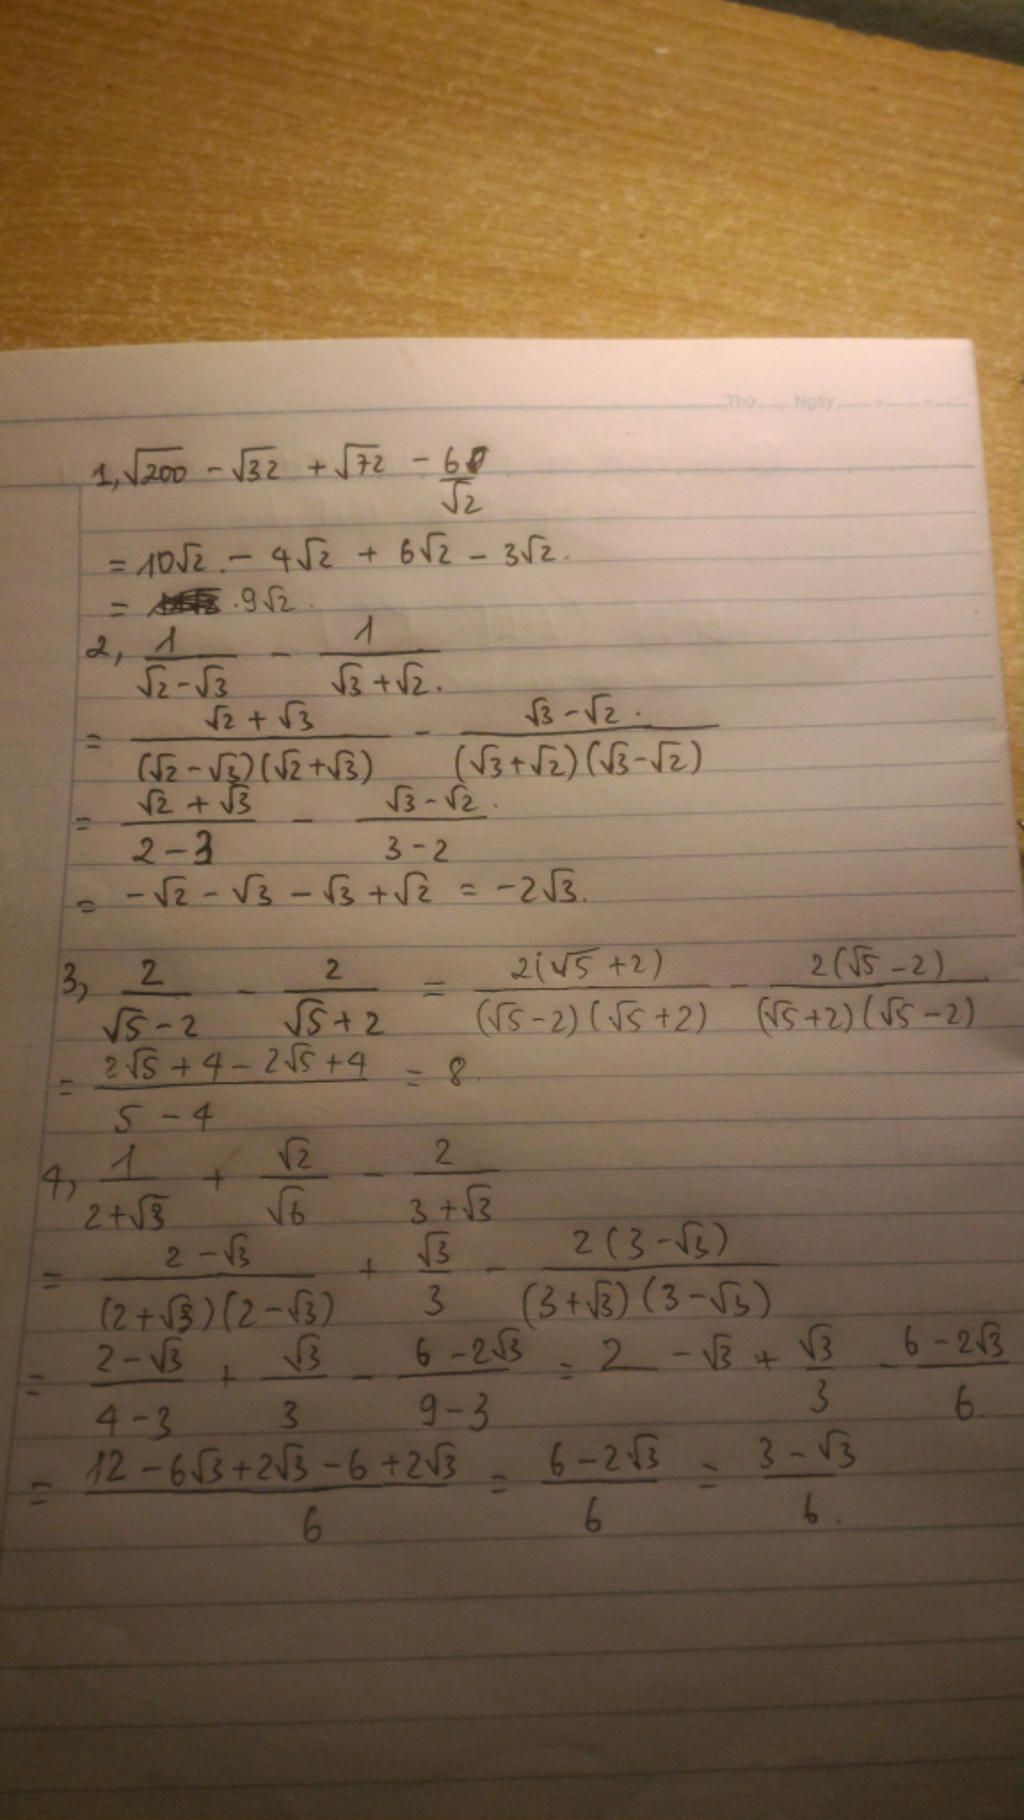 Thứ...... Ngày....... ........ .......
1, √200 - √32 + √72 - 6/√2
= 10√2 - 4√2 + 6√2 - 3√2.
= 9√2.
2, 1/(√2-√3) - 1/(√3+√2).
= (√2+√3)/((√2-√3)(√2+√3)) - (√3-√2)/((√3+√2)(√3-√2))
= (√2+√3)/(2-3) - (√3-√2)/(3-2)
= -√2 - √3 - √3 + √2 = -2√3.
3, 2/(√5-2) - 2/(√5+2) = 2(√5+2)/((√5-2)(√5+2)) - 2(√5-2)/((√5+2)(√5-2))
= (2√5+4-2√5+4)/(5-4) = 8.
4, 1/(2+√3) + √2/√6 - 2/(3+√3)
= (2-√3)/((2+√3)(2-√3)) + √3/3 - 2(3-√3)/((3+√3)(3-√3))
= (2-√3)/(4-3) + √3/3 - (6-2√3)/(9-3) = 2 - √3 + √3/3 - (6-2√3)/6.
= (12-6√3+2√3-6+2√3)/6 = (6-2√3)/6 = (3-√3)/6.